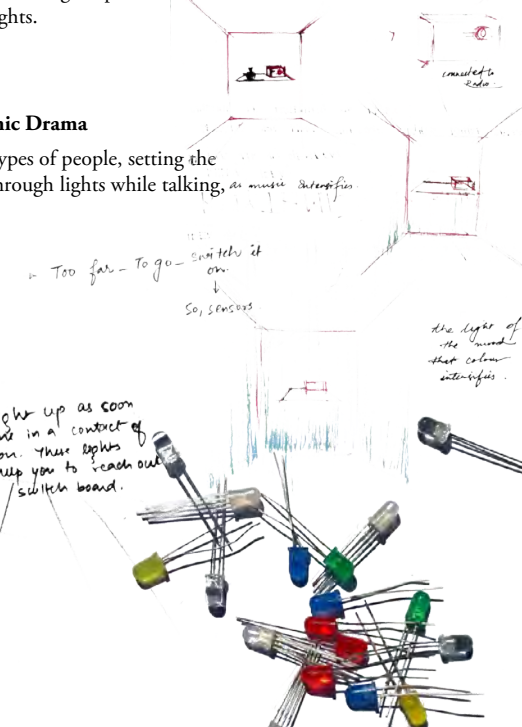 ghts.
connected to
Radio.
nic Drama
ypes of people, setting the
hrough lights while talking, as music intensifies.
Too far - To go - switch it
on.
↓
So, sensors
the light of
the mood
that colour
intensifies.
ght up as soon
me in a contact of
on. These lights
help you to reach out
switch board.